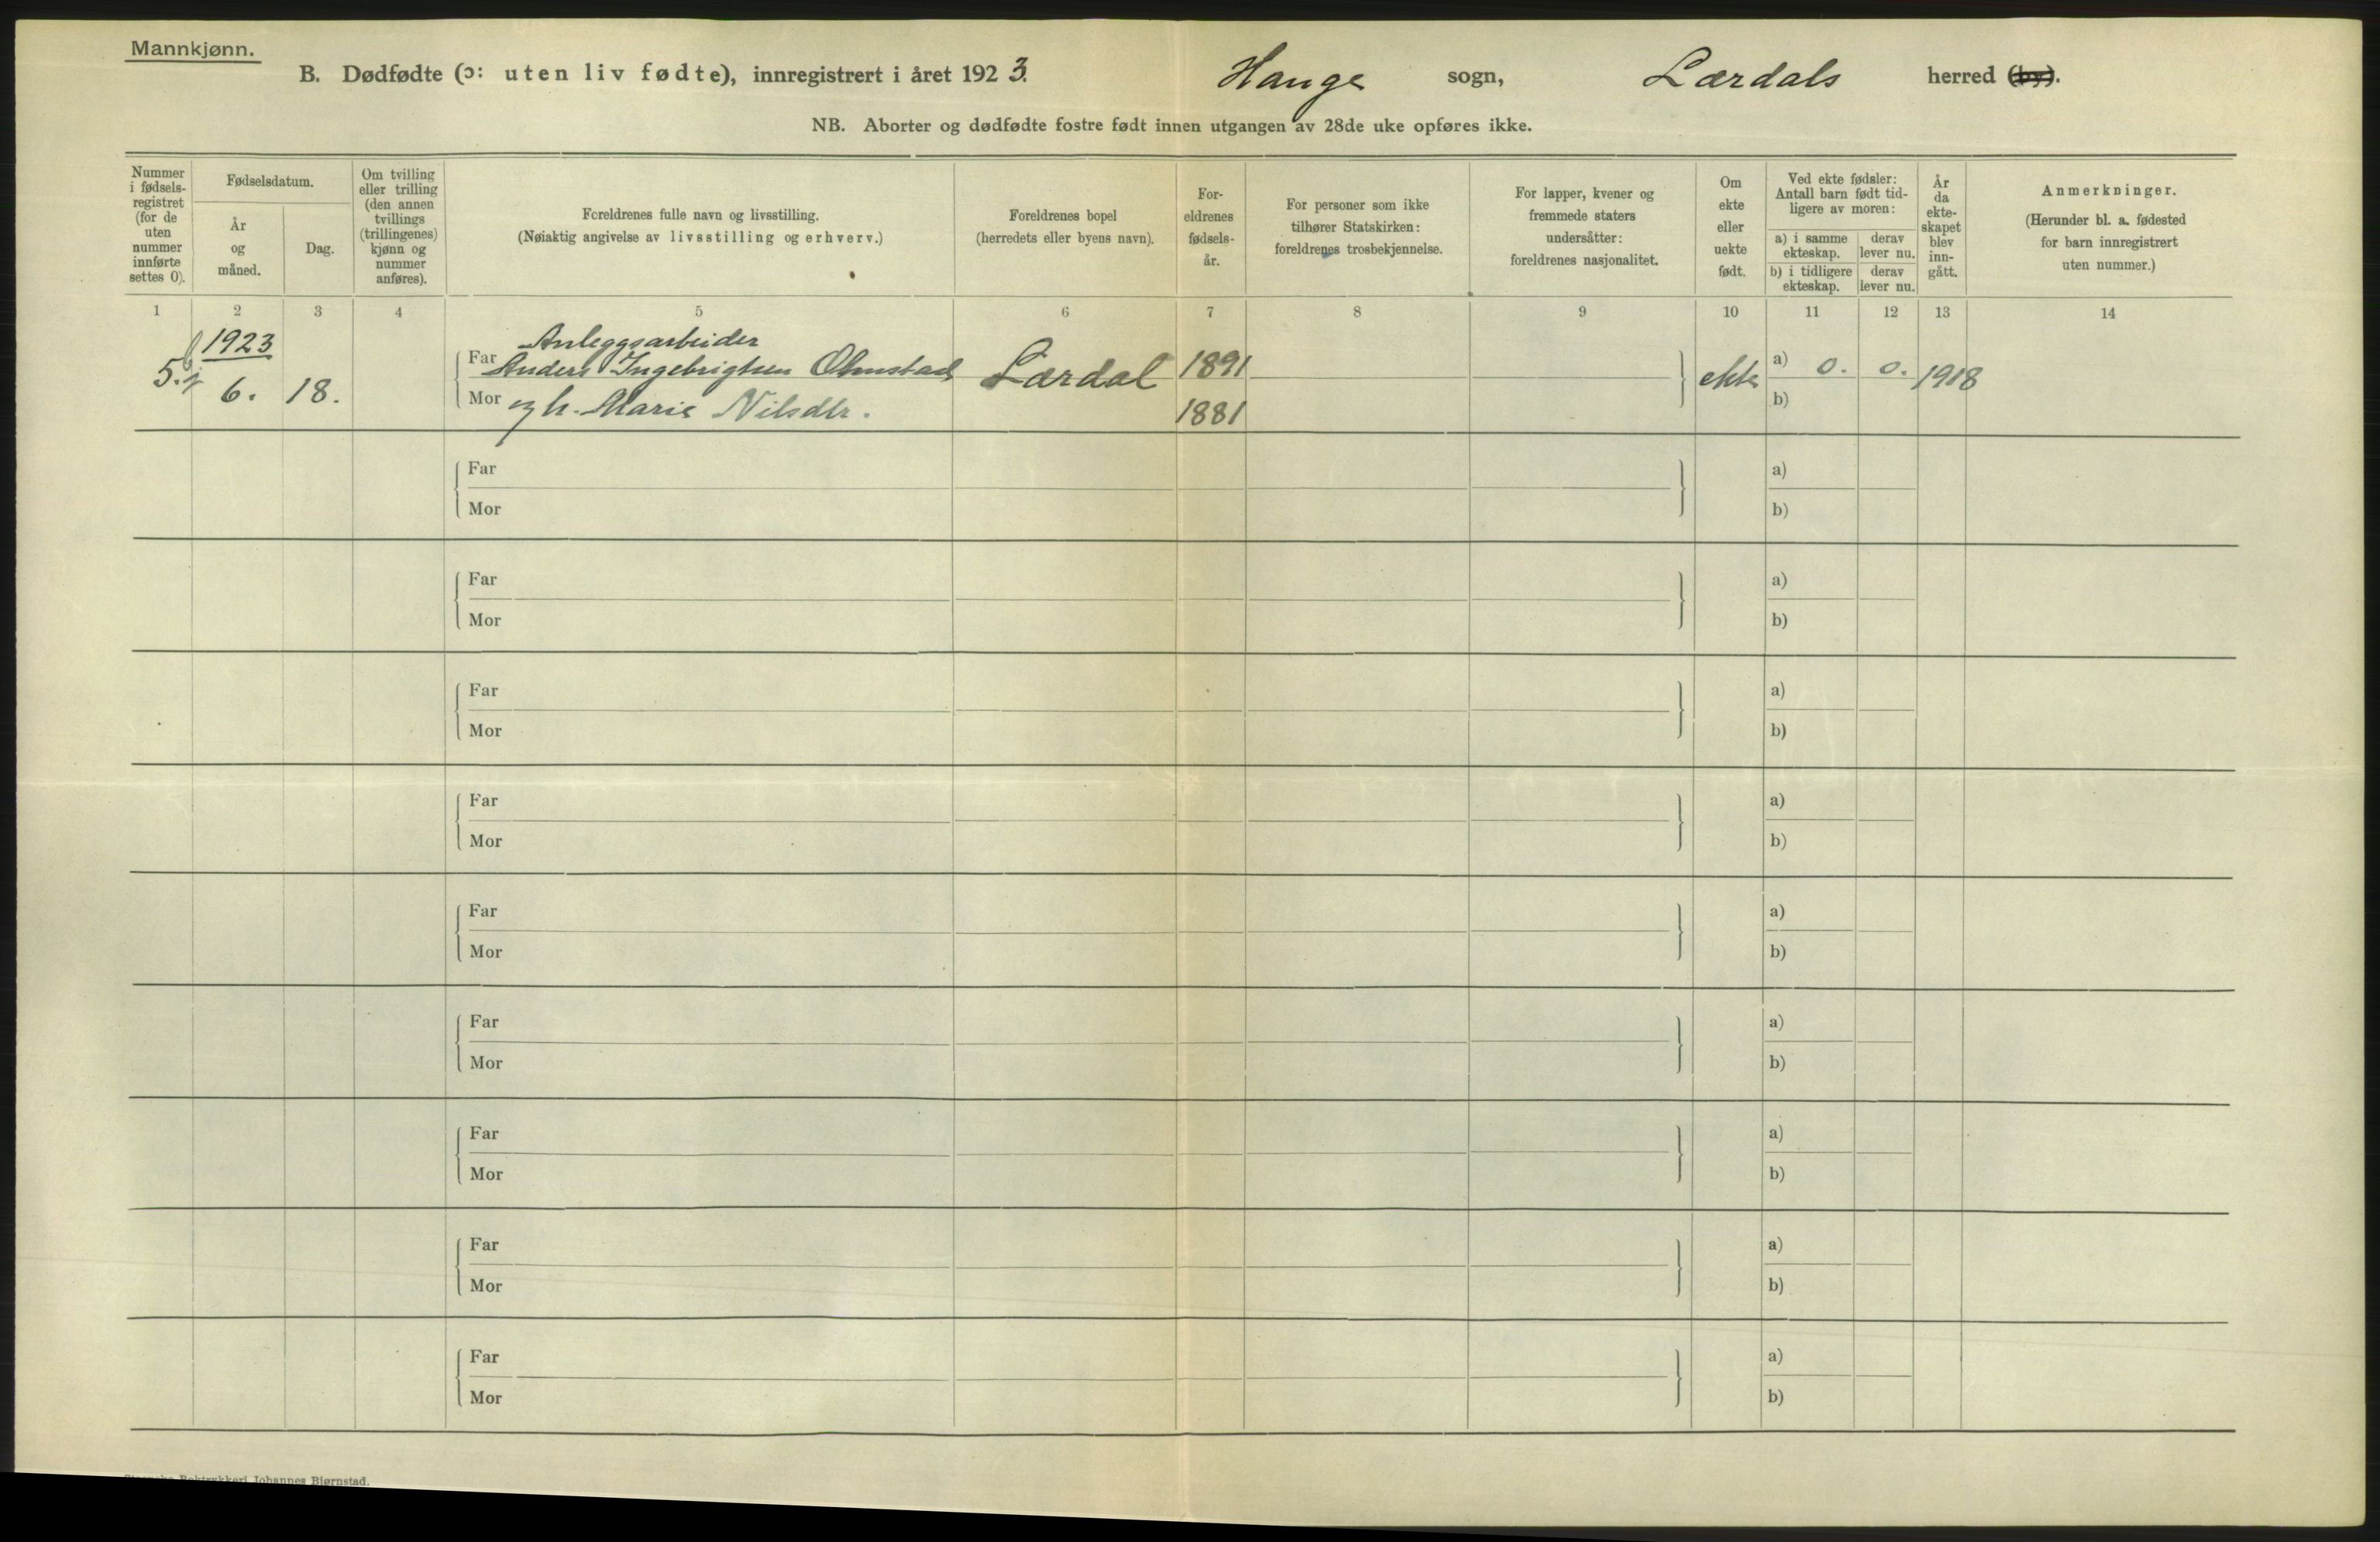 Mannkjønn.
B. Dødfødte (ɔ: uten liv fødte), innregistrert i året 1923. Hauge sogn, Lærdals herred (by).
NB. Aborter og dødfødte fostre født innen utgangen av 28de uke opføres ikke.
Nummer i fødsels- registret (for de uten nummer innførte settes 0).
Fødselsdatum.
År og måned.
Dag.
Om tvilling eller trilling (den annen tvillings (trillingenes) kjønn og nummer anføres).
Foreldrenes fulle navn og livsstilling.
(Nøiaktig angivelse av livsstilling og erhverv.)
Foreldrenes bopel
(herredets eller byens navn).
For- eldrenes fødsels- år.
For personer som ikke tilhører Statskirken: foreldrenes trosbekjennelse.
For lapper, kvener og fremmede staters undersåtter: foreldrenes nasjonalitet.
Om ekte eller uekte født.
Ved ekte fødsler: Antall barn født tid- ligere av moren:
a) i samme ekteskap.
derav lever nu.
b) i tidligere ekteskap.
derav lever nu.
År da ekte- skapet blev inn- gått.
Anmerkninger.
(Herunder bl. a. fødested for barn innregistrert uten nummer.)
1 2 3 4 5 6 7 8 9 10 11 12 13 14
1923 Anleggsarbeider
5. 6. 18. Far Anders Ingebrigtsen Ølmstad Lærdal 1891 ekte a) 0. 0. 1918
Mor og h. Marie Nilsdtr. 1881 b)
Far a)
Mor b)
Far a)
Mor b)
Far a)
Mor b)
Far a)
Mor b)
Far a)
Mor b)
Far a)
Mor b)
Far a)
Mor b)
Far a)
Mor b)
Far a)
Mor b)
Boktrykkeri Johannes Bjørnstad.